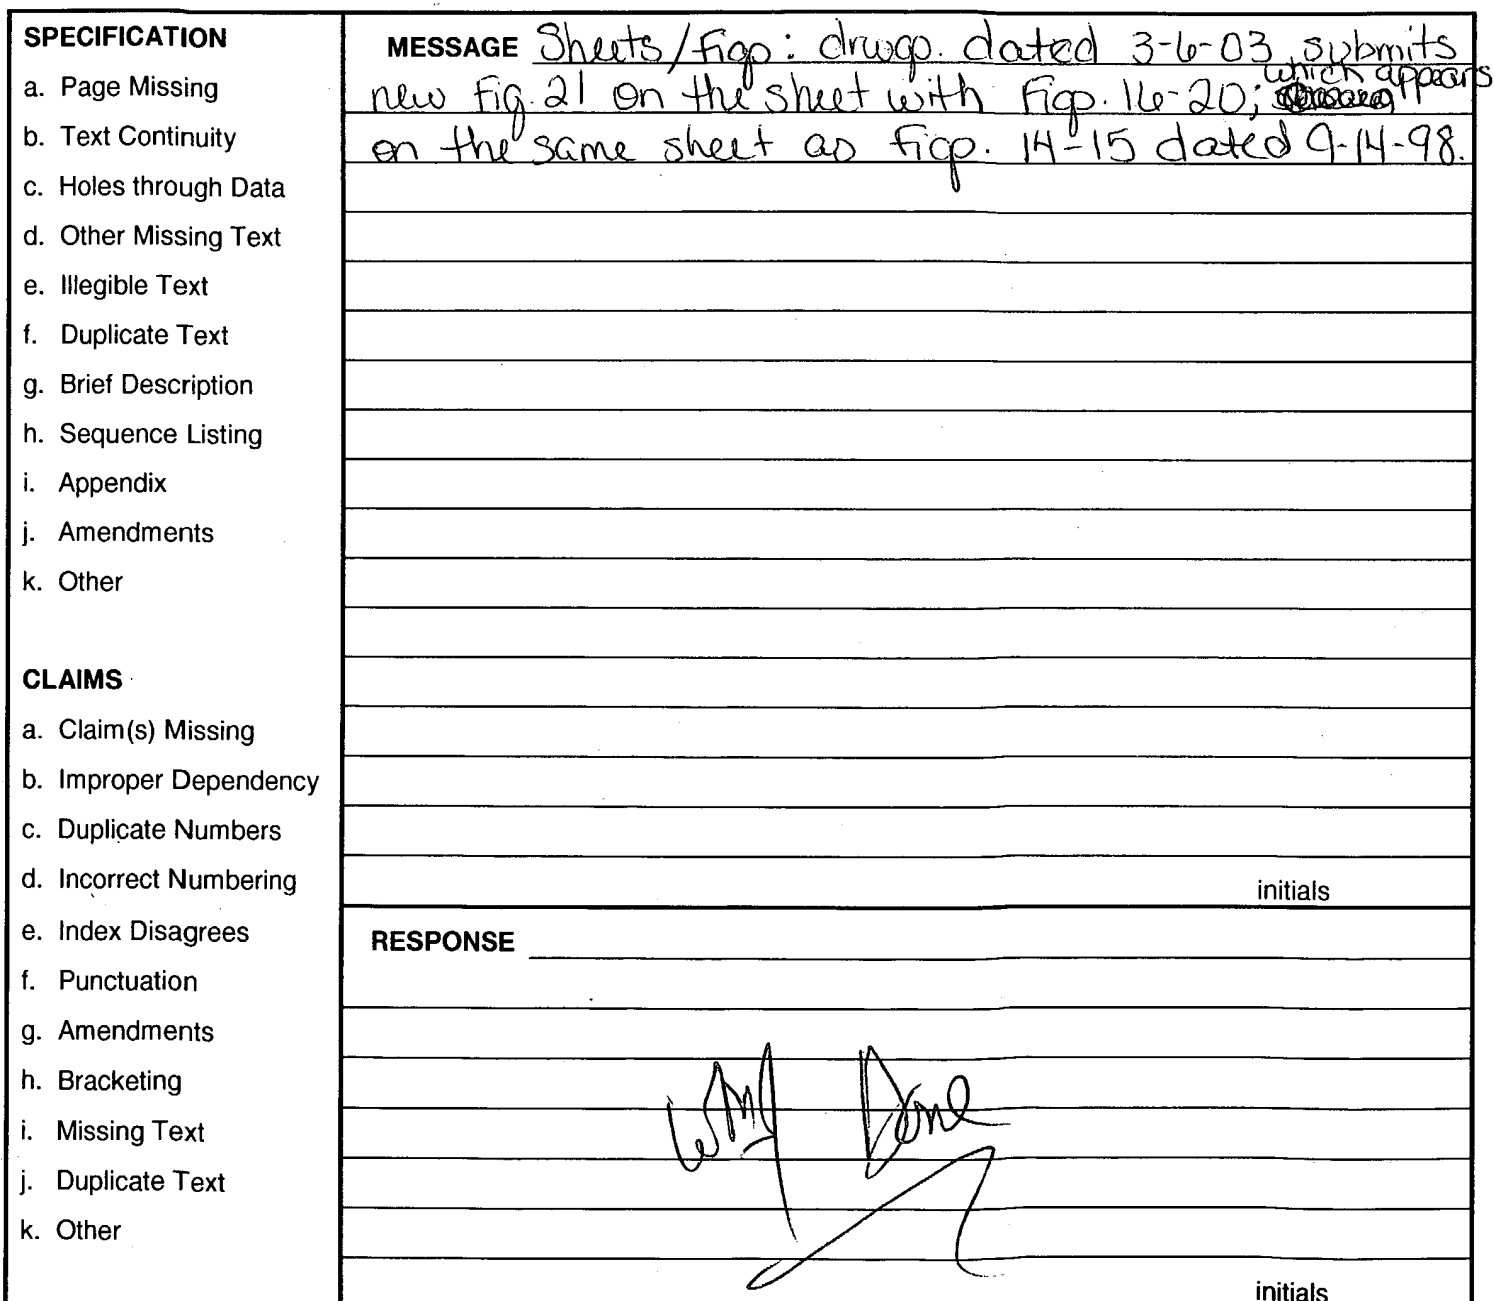 SPECIFICATION
a. Page Missing
b. Text Continuity
c. Holes through Data
d. Other Missing Text
e. Illegible Text
f. Duplicate Text
g. Brief Description
h. Sequence Listing
i. Appendix
j. Amendments
k. Other
CLAIMS
a. Claim(s) Missing
b. Improper Dependency
c. Duplicate Numbers
d. Incorrect Numbering
e. Index Disagrees
f. Punctuation
g. Amendments
h. Bracketing
i. Missing Text
j. Duplicate Text
k. Other
MESSAGE Sheets/Figs: drwgs. dated 3-6-03 submits
new Fig. 21 on the sheet with Figs. 16-20; which appears
on the same sheet as figs. 14-15 dated 9-14-98.
initials
RESPONSE
Done
initials